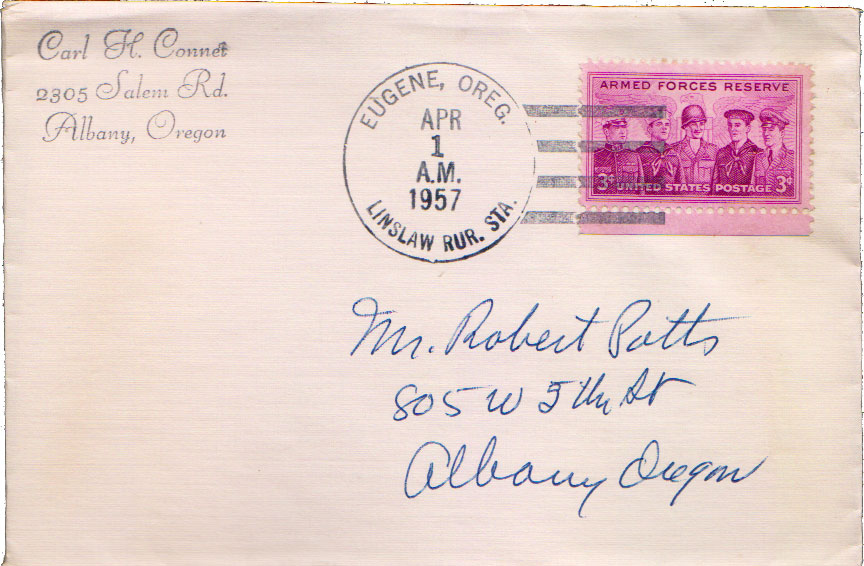 Carl H. Connet
2305 Salem Rd.
Albany, Oregon
EUGENE, OREG.
APR
1
A.M.
1957
LINSLAW RUR. STA.
ARMED FORCES RESERVE
3¢ UNITED STATES POSTAGE 3¢
Mr. Robert Potts
805 W 5th St
Albany Oregon